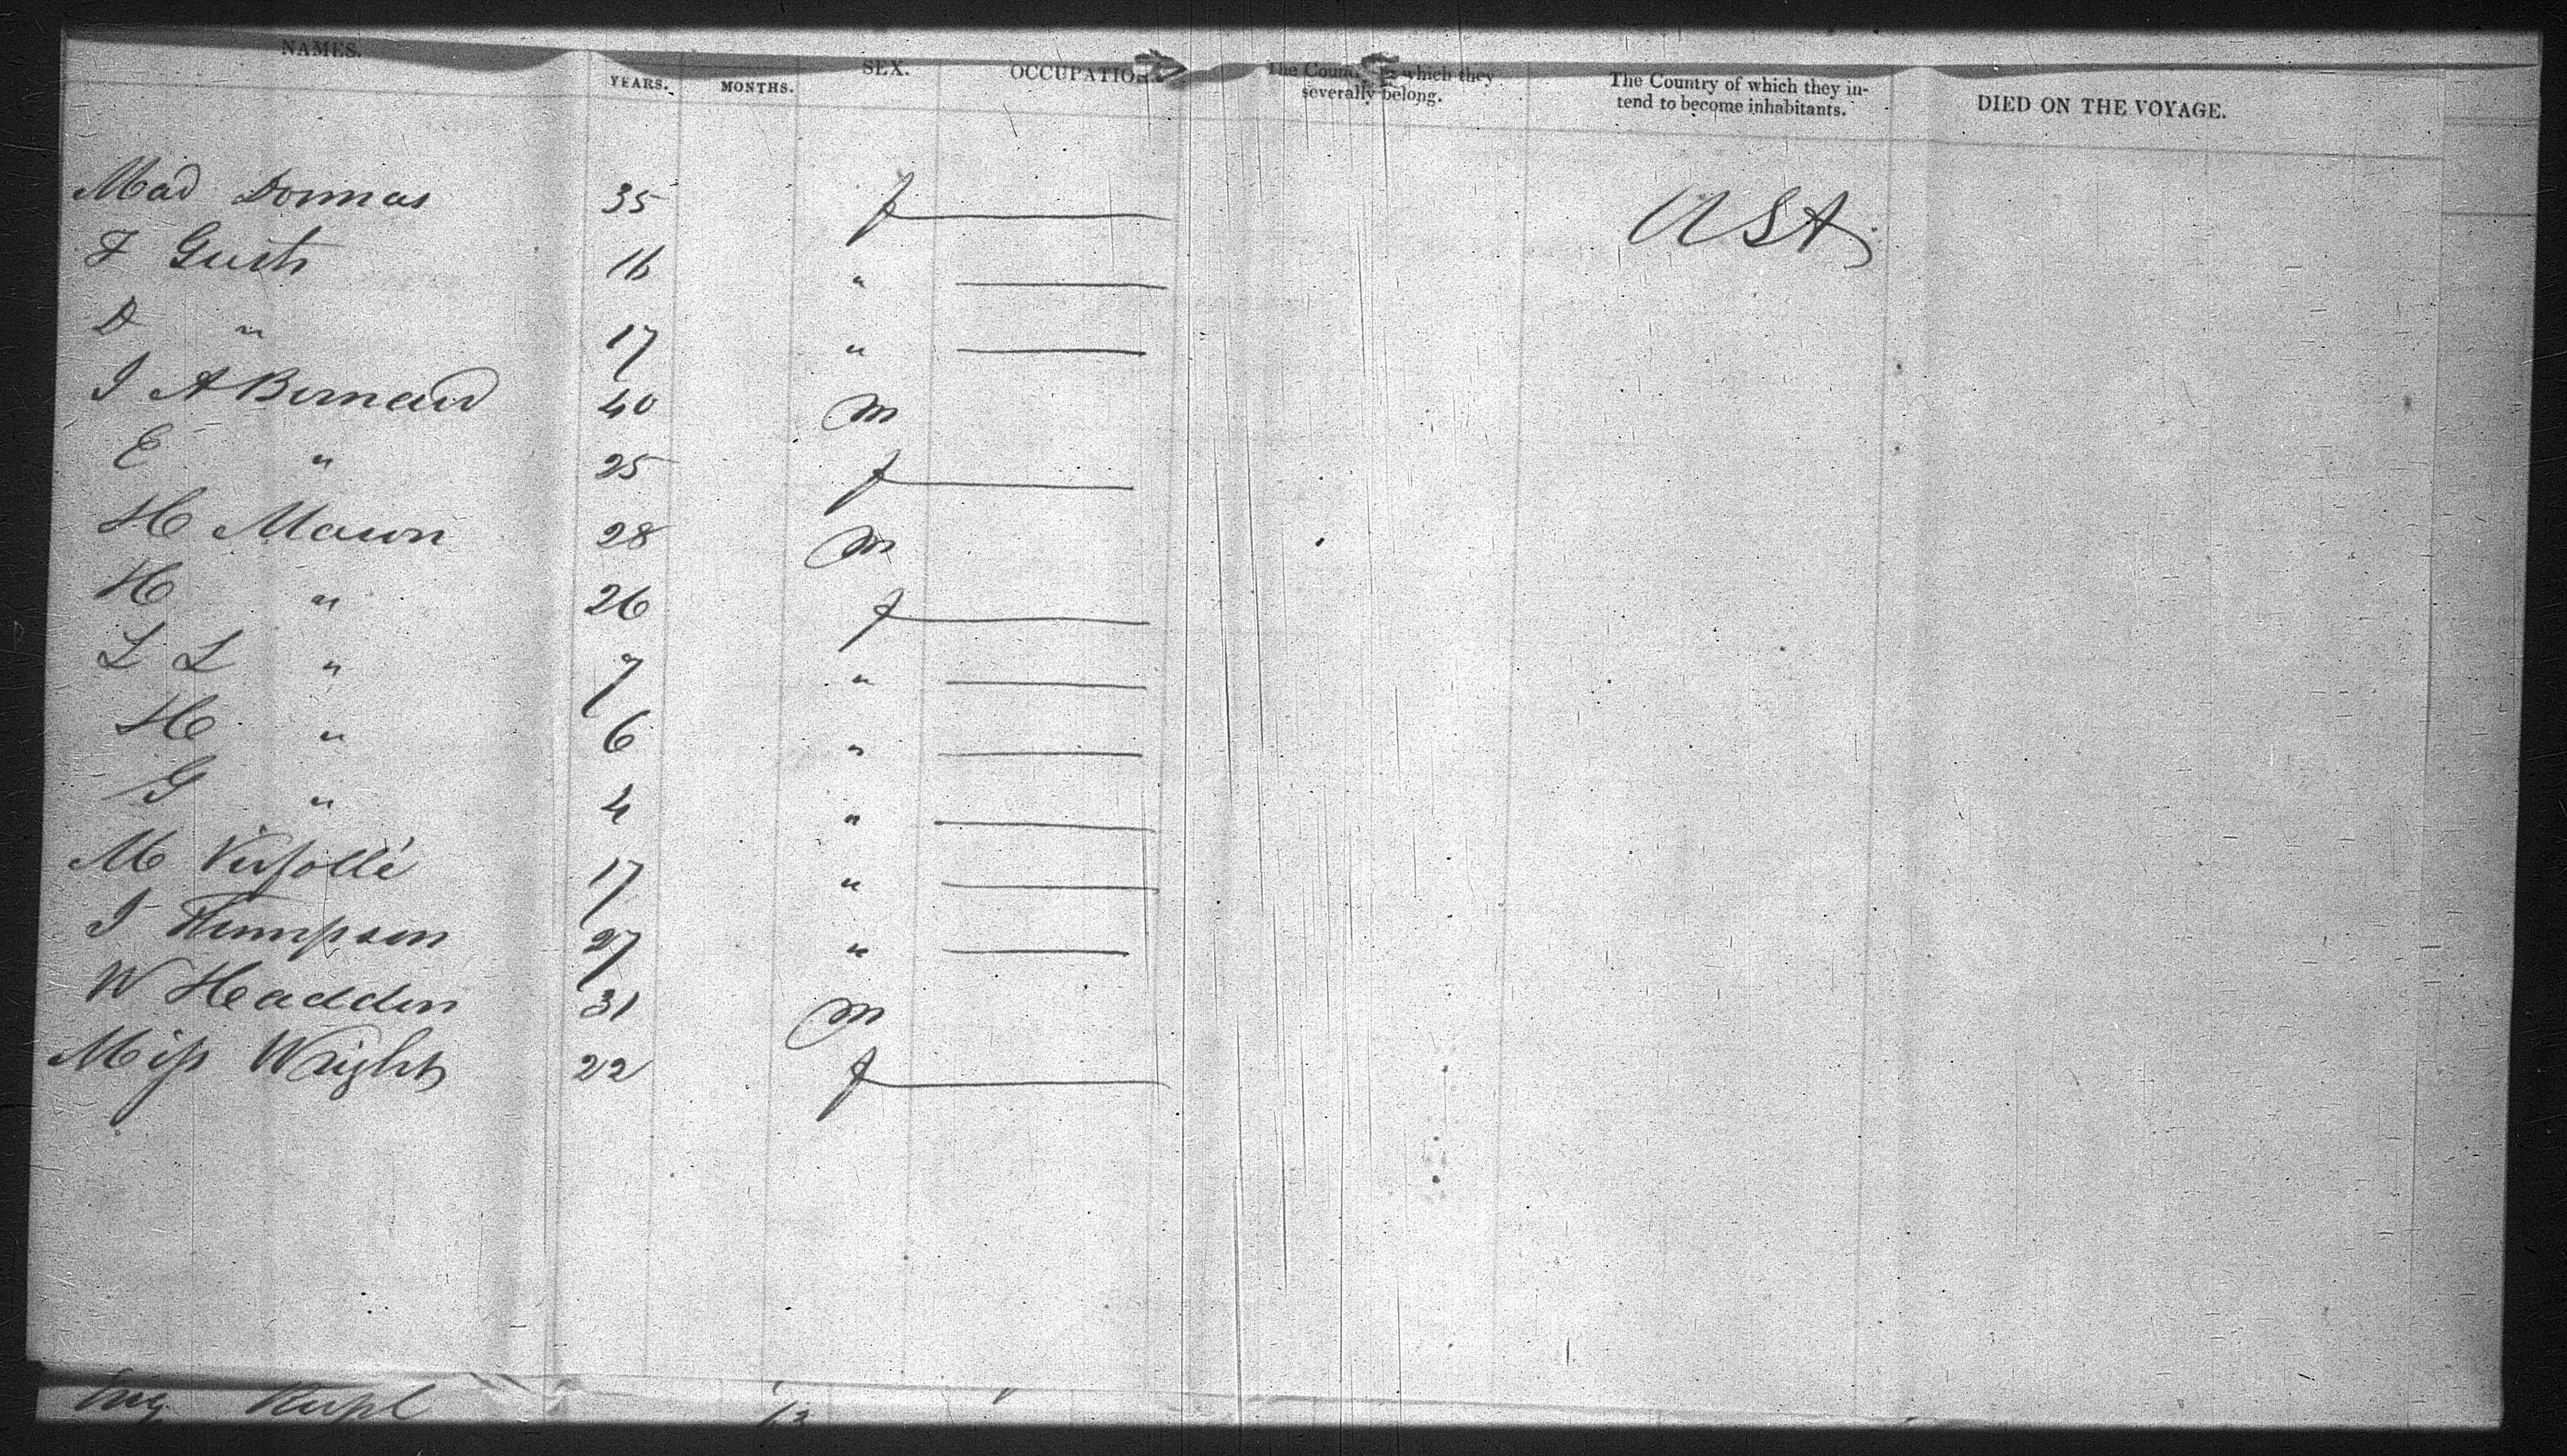 NAMES. YEARS. MONTHS. SEX. OCCUPATION. The Country to which they severally belong. The Country of which they intend to become inhabitants. DIED ON THE VOYAGE.
Mad Donnas 35 f USA
F 16 "
D " 17 "
J A Bernard 40 m
E " 25 f
H Mason 28 m
H " 26 f
L L " 7 "
H " 6 "
G " 4 "
M 17 "
J Thompson 27 "
W Headden 31 m
Miss Wright 22 f